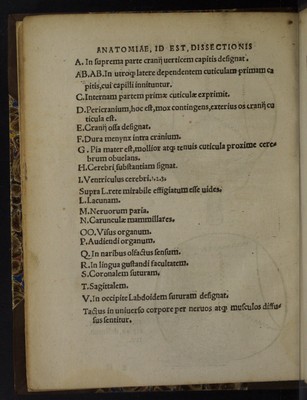 ANATOMIAE, ID EST, DISSECTIONIS
A. In suprema parte cranij uerticem capitis designat.
AB.AB. In utroq; latere dependentem cuticulam primam ca
pitis, cui capilli innituntur.
C. Internam partem primæ cuticulæ exprimit.
D. Pericranium, hoc est, mox contingens, exterius os cranij cu
ticula est.
E. Cranij ossa designat.
F. Dura menynx intra cranium.
G. Pia mater est, mollior atq; tenuis cuticula proxime cere
brum obuelans.
H. Cerebri, substantiam signat.
I. Ventriculus cerebri. 1.2.3.
Supra L. rete mirabile effigiatum esse uides.
L. Lacunam.
M. Neruorum paria.
N. Carunculæ mammillares.
OO. Visus organum.
P. Audiendi organum.
Q. In naribus olfactus sensum.
R. In lingua gustandi facultatem.
S. Coronalem suturam.
T. Sagittalem.
V. In occipite Labdoidem suturam designat.
Tactus in uniuerso corpore per neruos atq; musculos diffu
sus sentitur.